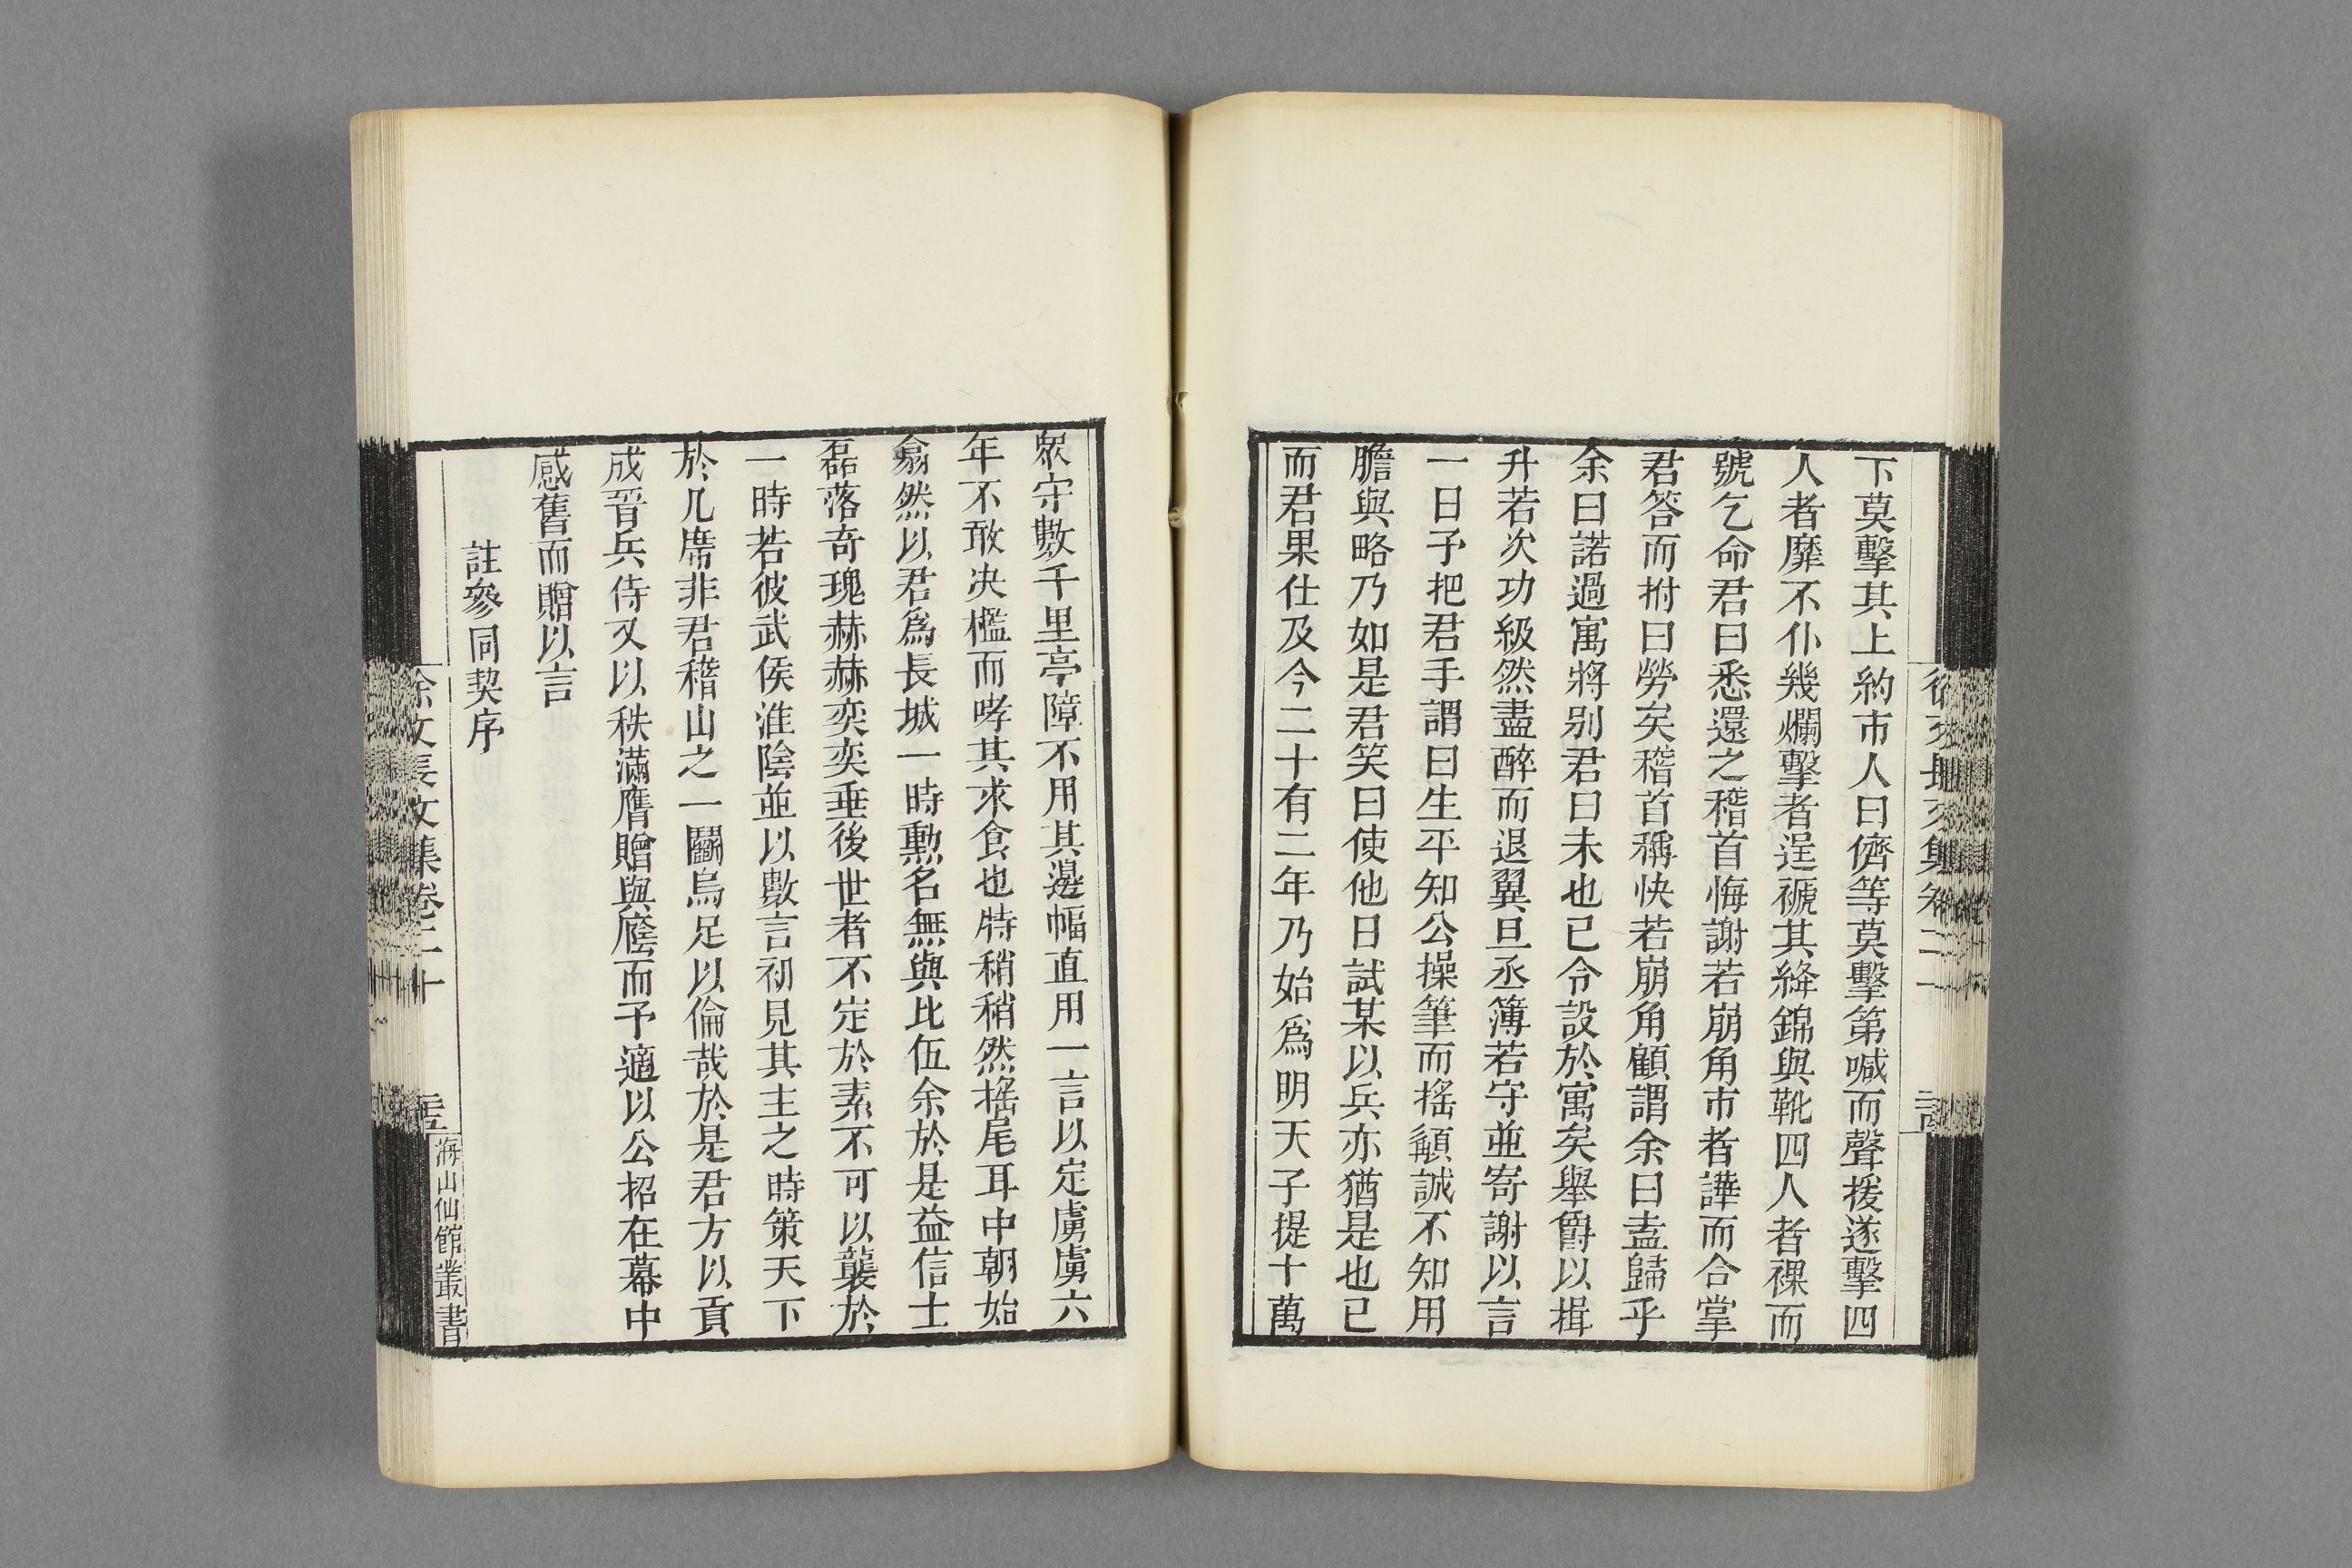 下莫擊其上約市人曰儕等莫擊第喊而聲援遂擊四
人者靡不仆幾爛擊者逞褫其絳錦與靴四人者裸而
號乞命君曰悉還之稽首悔謝若崩角市者譁而合掌
君答而拊曰勞矣稽首稱快若崩角顧謂余曰盍歸乎
余曰諾過寓將别君曰未也已令設於寓矣舉爵以揖
升若次功級然盡醉而退翼旦丞簿若守並寄謝以言
一日予把君手謂曰生平知公操筆而搖顧誠不知用
膽與略乃如是君笑曰使他日試某以兵亦猶是也已
而君果仕及今二十有二年乃始爲明天子提十萬
眾守數千里亭障不用其邊幅直用一言以定虜虜六
年不敢决檻而哮其求食也特稍稍然搖尾耳中朝始
翕然以君爲長城一時勳名無與比伍余於是益信士
磊落奇瑰赫赫奕奕垂後世者不定於素不可以襲於
一時若彼武侯淮陰並以數言初見其主之時策天下
於几席非君稽山之一鬭烏足以倫哉於是君方以貢
成晉兵侍又以秩滿膺贈與廕而予適以公招在幕中
感舊而贈以言
註參同契序
徐文長文集卷二十
海山仙館叢書